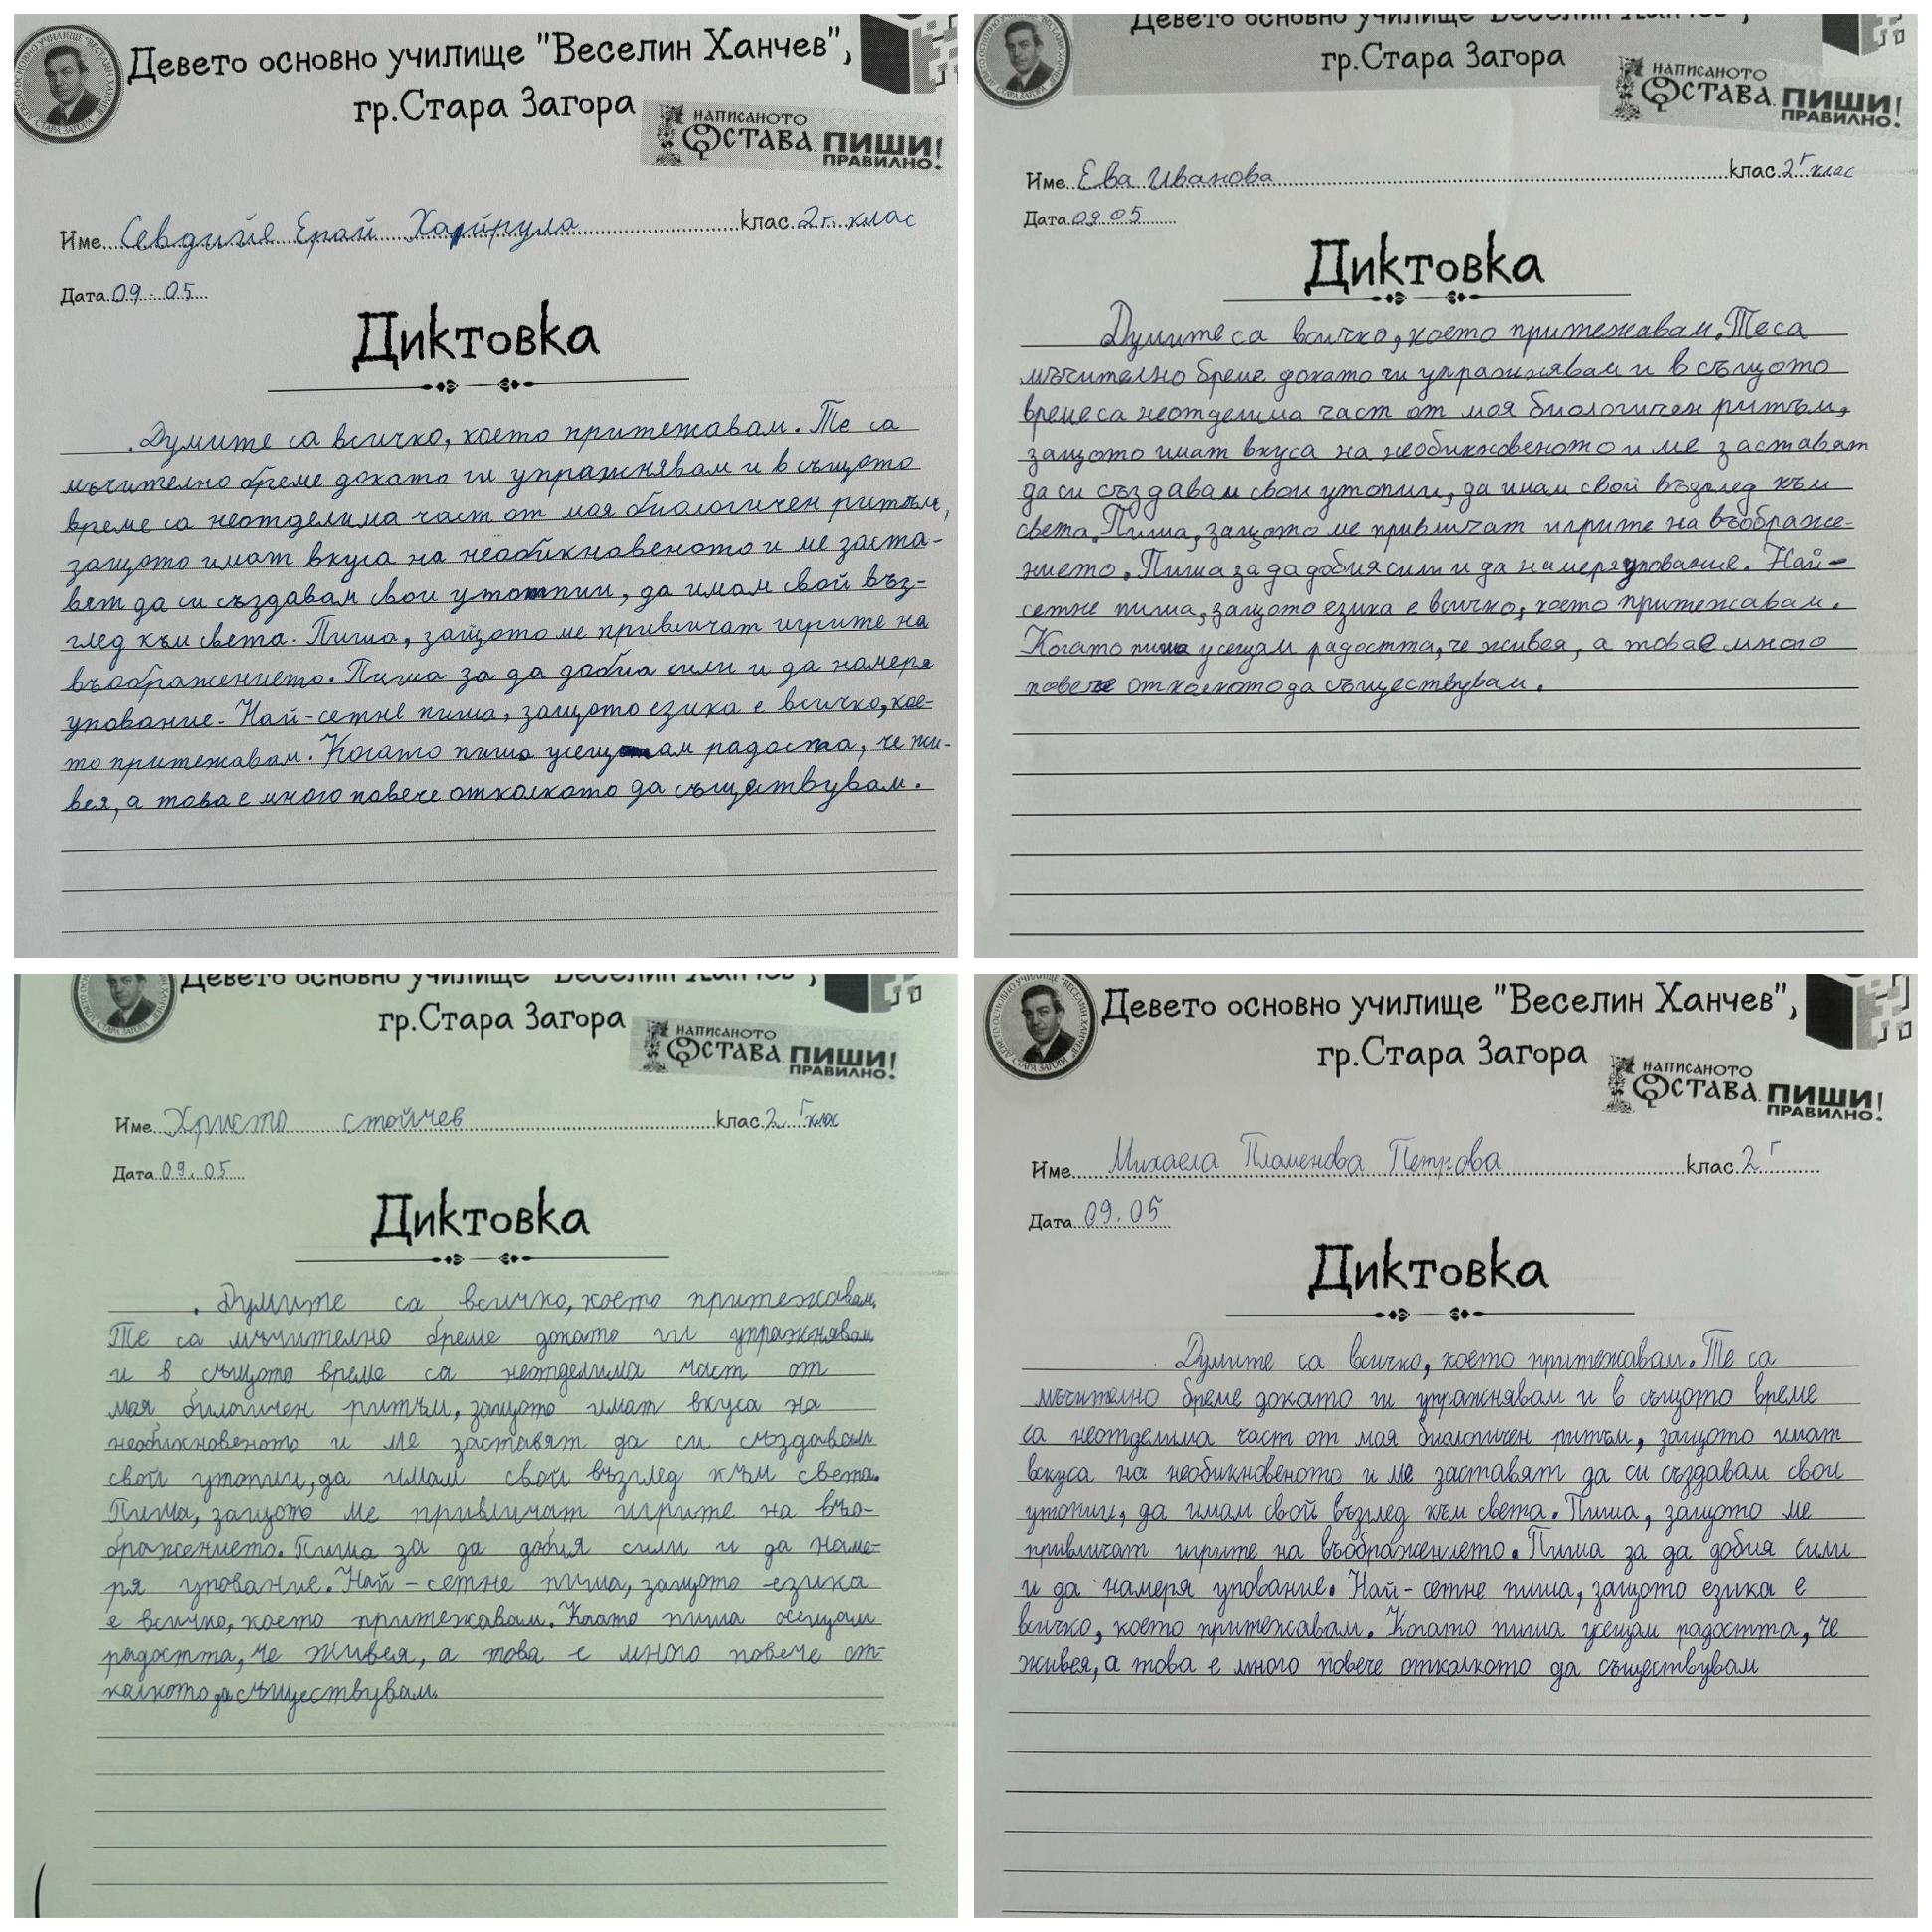 Девето основно училище "Веселин Ханчев",
гр.Стара Загора
НАПИСАНОТО
ОСТАВА. ПИШИ!
ПРАВИЛНО!
Име Севдигія Ерай Хайрула клас 2 г. клас
Дата 09.05
Диктовка
Думите са всичко, което притежавам. Те са
мъчително бреме докато ги упражнявам и в същото
време са неотделима част от моя биологичен ритъм,
защото имат вкуса на необикновеното и ме заста-
вят да си създавам свои утопии, да имам свой въз-
глед към света. Пиша, защото ме привличат игрите на
въображението. Пиша за да добия сили и да намеря
упование. Най-сетне пиша, защото езика е всичко, кое-
то притежавам. Когато пиша усещам радостта, че жи-
вея, а това е много повече отколкото да съществувам.
Девето основно училище "Веселин Ханчев",
гр.Стара Загора
НАПИСАНОТО
ОСТАВА. ПИШИ!
ПРАВИЛНО!
Име Ева Иванова клас 2 г клас
Дата 09.05
Диктовка
Думите са всичко, което притежавам. Те са
мъчително бреме докато ги упражнявам и в същото
време са неотделима част от моя биологичен ритъм,
защото имат вкуса на необикновеното и ме заставят
да си създавам свои утопии, да имам свой възглед към
света. Пиша, защото ме привличат игрите на въображе-
нието. Пиша за да добия сили и да намеря упование. Най-
сетне пиша, защото езика е всичко, което притежавам.
Когато пиша усещам радостта, че живея, а това е много
повече отколкото да съществувам.
Девето основно училище "Веселин Ханчев",
гр.Стара Загора
НАПИСАНОТО
ОСТАВА. ПИШИ!
ПРАВИЛНО!
Име Христо стойчев клас 2 г клас
Дата 09.05
Диктовка
Думите са всичко, което притежавам.
Те са мъчително бреме докато ги упражнявам
и в същото време са неотделима част от
моя билогичен ритъм, защото имат вкуса на
необикновеното и ме заставят да си създавам
свой утопии, да имам свой възглед към света.
Пиша, защото ме привличат игрите на въо-
бражението. Пиша за да добия сили и да наме-
ря упование. Най-сетне пиша, защото езика
е всичко, което притежавам. Когато пиша осещам
радостта, че живея, а това е много повече от-
колкото да съществувам.
Девето основно училище "Веселин Ханчев",
гр.Стара Загора
НАПИСАНОТО
ОСТАВА. ПИШИ!
ПРАВИЛНО!
Име Михаела Пламенова Петрова клас 2 г
Дата 09.05
Диктовка
Думите са всичко, което притежавам. Те са
мъчително бреме докато ги упражнявам и в същото време
са неотделима част от моя биологичен ритъм, защото имат
вкуса на необикновеното и ме заставят да си създавам свои
утопии, да имам свой възглед към света. Пиша, защото ме
привличат игрите на въображението. Пиша за да добия сили
и да намеря упование. Най-сетне пиша, защото езика е
всичко, което притежавам. Когато пиша усещам радостта, че
живея, а това е много повече отколкото да съществувам